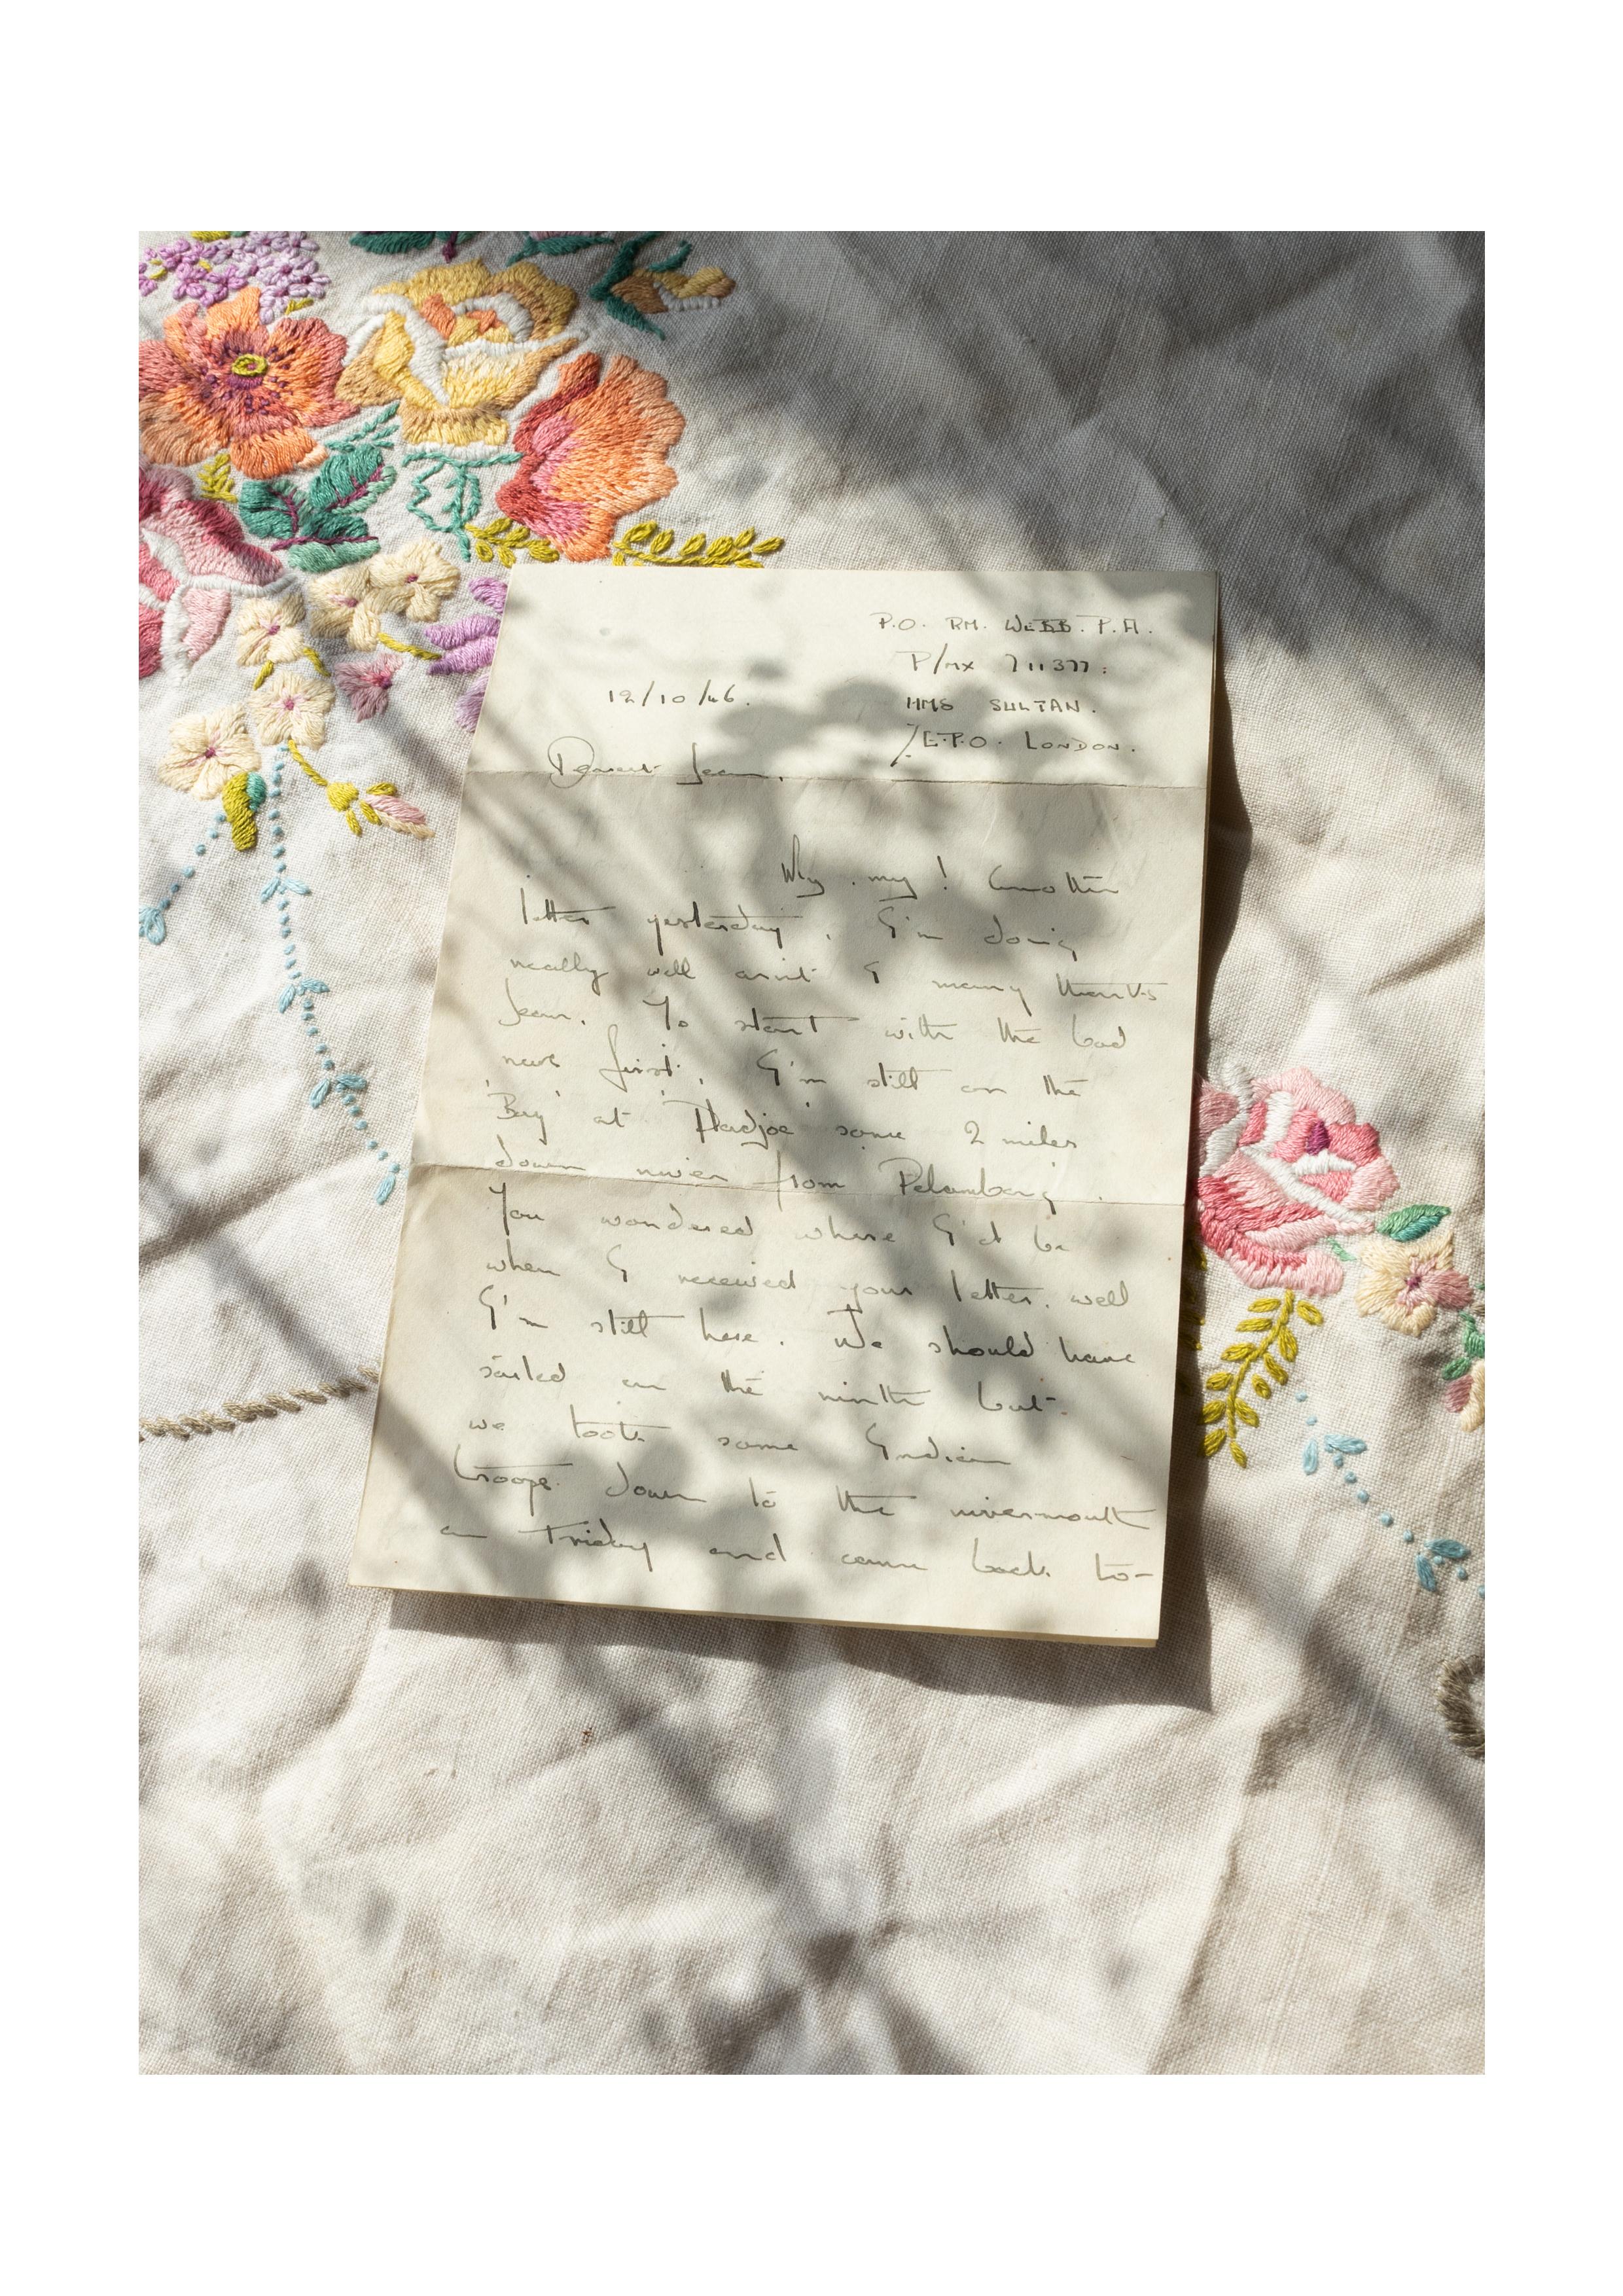 P.O. RM. WEBB. P.A.
P/MX 711377.
12/10/46. HMS SULTAN.
℅ G.P.O. LONDON.
Dearest Jean,
My, my! Another
letter yesterday. I'm doing
really well arn't I many thanks
Jean. To start with the bad
news first, I'm still on the
'Bay' at 'Pladjoe' some 2 miles
down river from Palembang.
You wondered where I'd be
when I received your letter, well
I'm still here. We should have
sailed on the ninth but
we took some Indian
troops down to the rivermouth
on Friday and came back to-